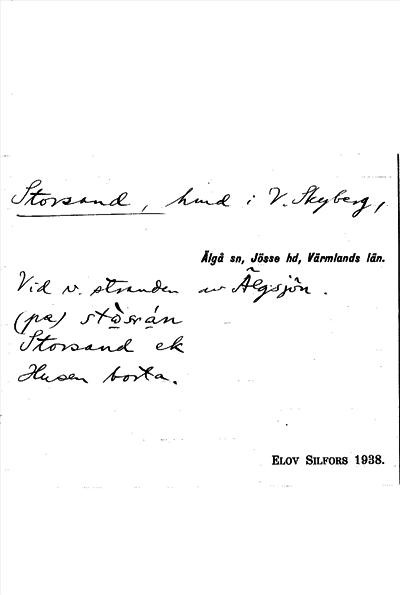 Storsand, hmd i V. Skyberg,
Älgå sn, Jösse hd, Värmlands län.
Vid v. stranden av Älgsjön.
(pa) stò̤srán
Storsand ek
Husen borta.
ELOV SILFORS 1938.